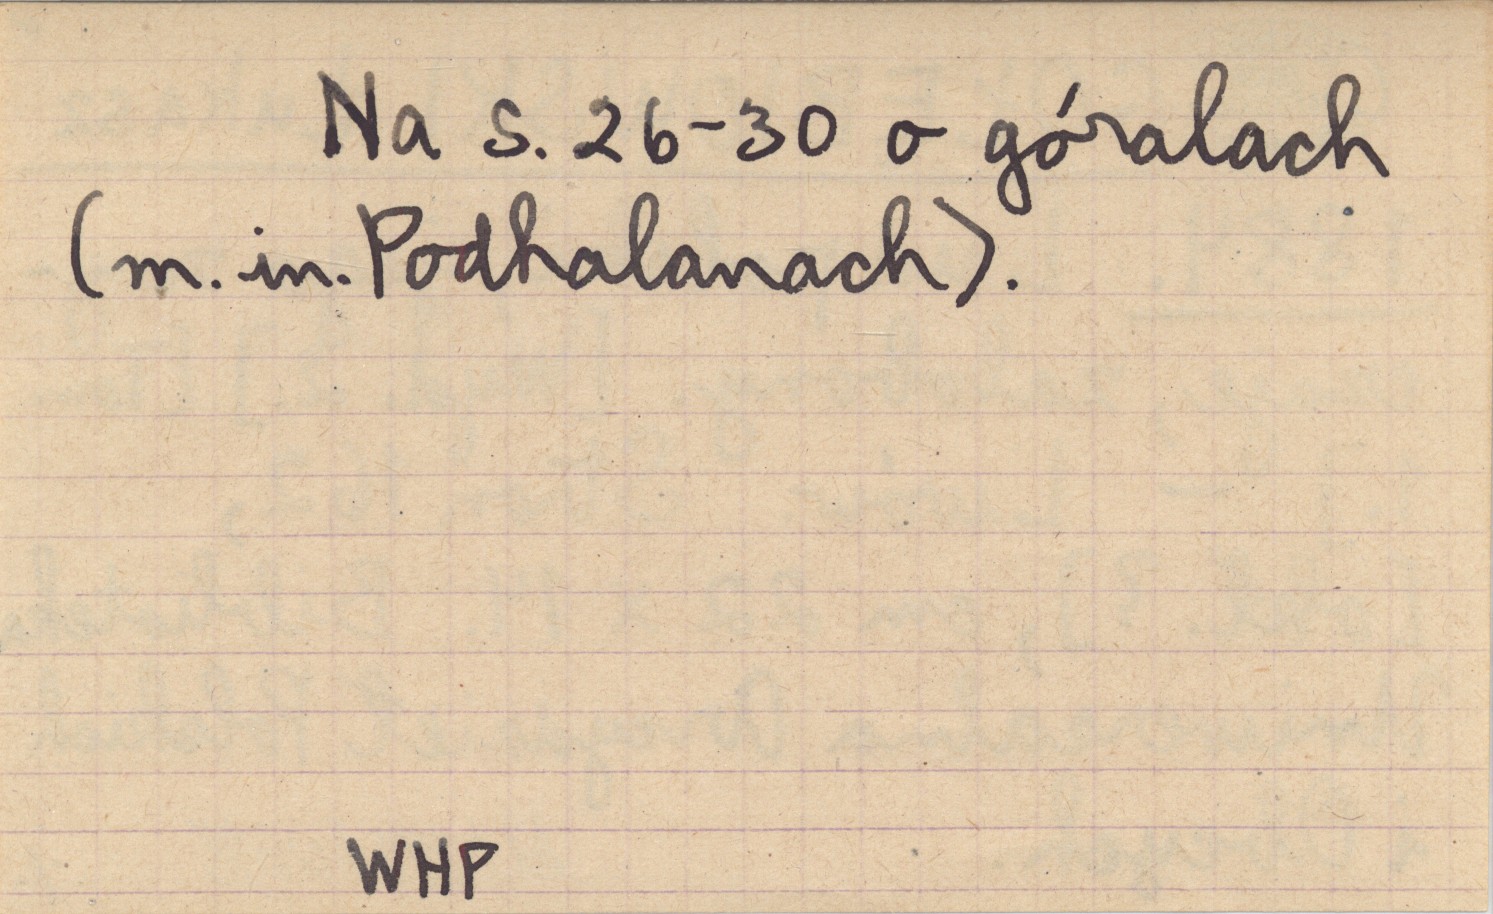 Na s. 26-30 o góralach
(m. in. Podhalanach).
WHP